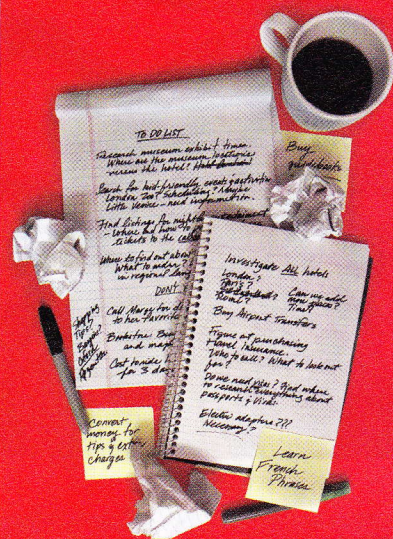 TO DO LIST
Research museum exhibit times.
Where are the museum locations
versus the hotel?
Search for kid-friendly events & activities
London Zoo? Scheduling? Maybe
Little Venice - need information.
Find listings for nightly entertainment
- Where and how to
tickets to the
Where to find out about
What to order?
in regional
DON'T
Call Margy for
to her favorite
Bookstore
and
Cost to ride
for 3 da
Buy
guidebooks
Tips?
Investigate ALL hotels
London?
Paris?
Rome?
Can we add
more places?
Time?
Buy Airport Transfers
Figure out purchasing
travel insurance.
Who to call? What to look out
for?
Do we need visas? Find where
to research everything about
passports & visas.
Electric adapters???
Necessary?
Convert
money for
tips & extra
charges
Learn
French
Phrases